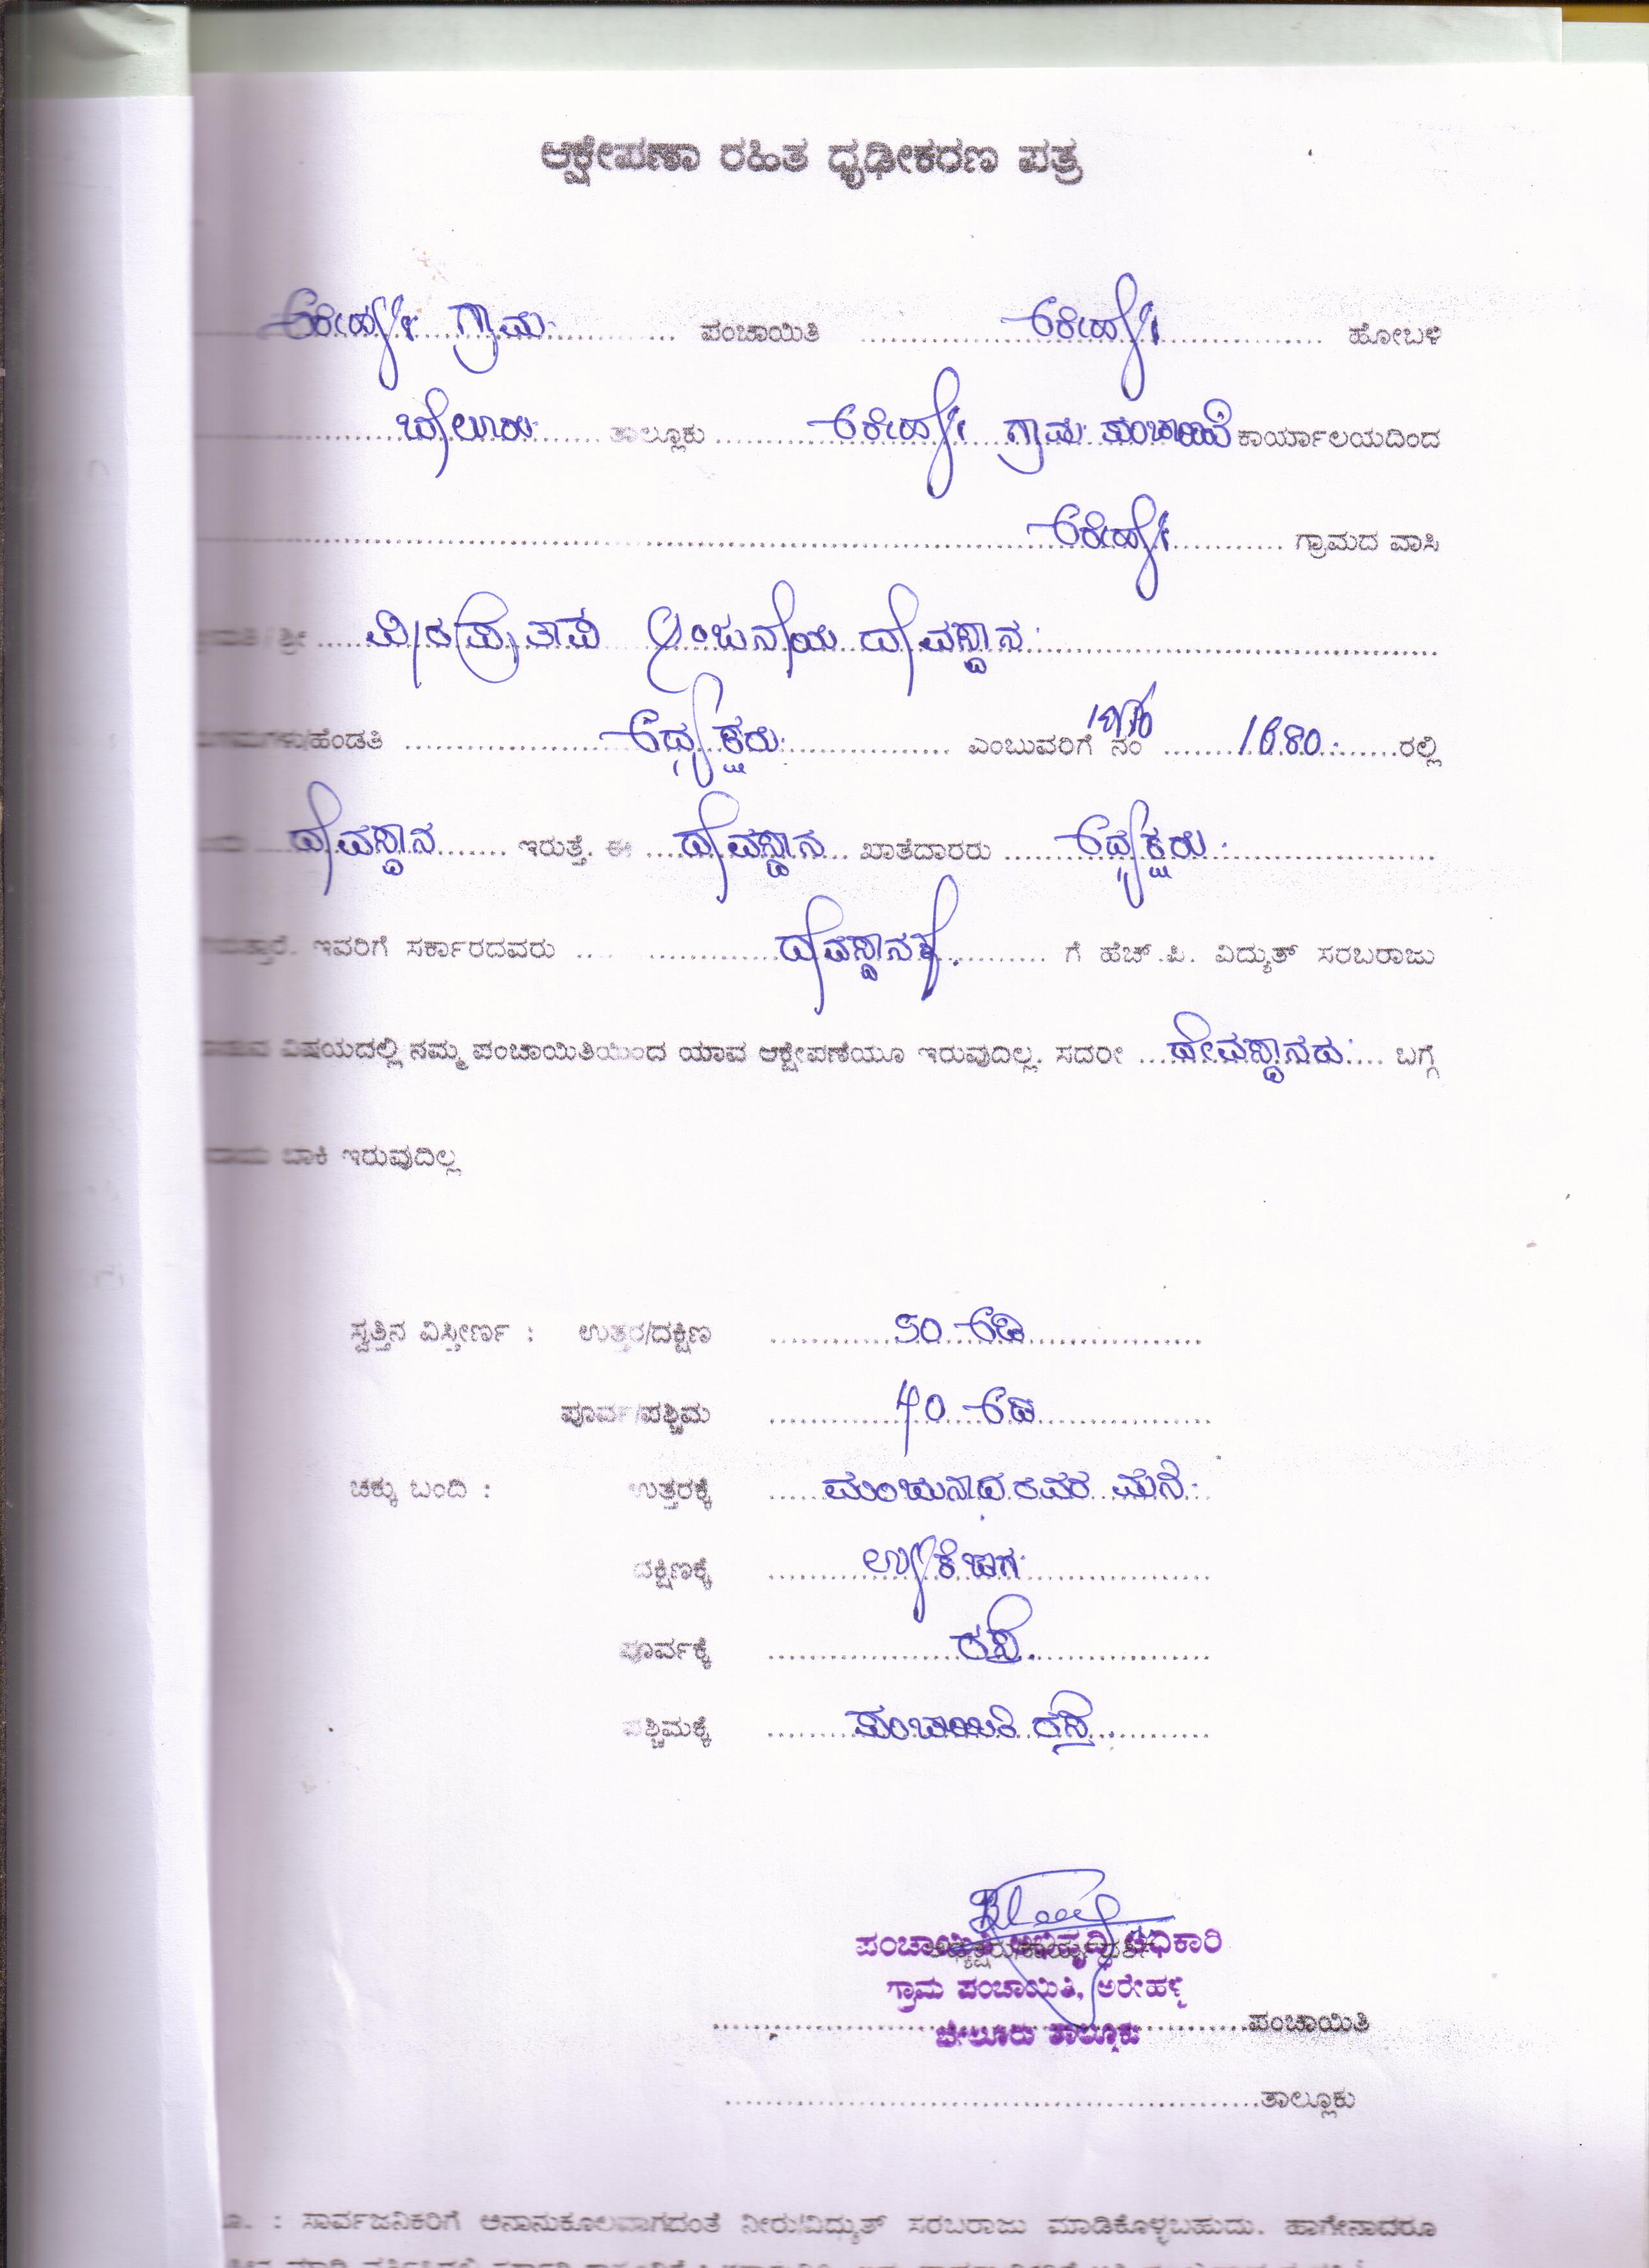 ಆಕ್ಷೇಪಣಾ ರಹಿತ ಧೃಢೀಕರಣ ಪತ್ರ
ಅರೇಹಳ್ಳಿ ಗ್ರಾಮ ಪಂಚಾಯಿತಿ ಅರೇಹಳ್ಳಿ ಹೋಬಳಿ
ಬೇಲೂರು ತಾಲ್ಲೂಕು ಅರೇಹಳ್ಳಿ ಗ್ರಾಮ ಪಂಚಾಯಿತಿ ಕಾರ್ಯಾಲಯದಿಂದ
ಅರೇಹಳ್ಳಿ ಗ್ರಾಮದ ವಾಸಿ
ಶ್ರೀ ಆಂಜನೇಯ ದೇವಸ್ಥಾನ
ಹೆಂಡತಿ ಅಧ್ಯಕ್ಷರು ಎಂಬುವರಿಗೆ ನಂ 1680 ರಲ್ಲಿ
ದೇವಸ್ಥಾನ ಇರುತ್ತೆ. ಈ ದೇವಸ್ಥಾನ ಖಾತೆದಾರರು ಅಧ್ಯಕ್ಷರು
ಇವರಿಗೆ ಸರ್ಕಾರದವರು ದೇವಸ್ಥಾನಕ್ಕೆ ಗೆ ಹೆಚ್.ಪಿ. ವಿದ್ಯುತ್ ಸರಬರಾಜು
ವಿಷಯದಲ್ಲಿ ನಮ್ಮ ಪಂಚಾಯಿತಿಯಿಂದ ಯಾವ ಆಕ್ಷೇಪಣೆಯೂ ಇರುವುದಿಲ್ಲ. ಸದರೀ ದೇವಸ್ಥಾನದ ಬಗ್ಗೆ
ಬಾಕಿ ಇರುವುದಿಲ್ಲ
ಸ್ವತ್ತಿನ ವಿಸ್ತೀರ್ಣ : ಉತ್ತರ/ದಕ್ಷಿಣ 50 ಅಡಿ
ಪೂರ್ವ/ಪಶ್ಚಿಮ 40 ಅಡಿ
ಚಕ್ಕು ಬಂದಿ : ಉತ್ತರಕ್ಕೆ ಮಂಜುನಾಥ ರವರ ಮನೆ
ದಕ್ಷಿಣಕ್ಕೆ ಉಳಿಕೆ ಜಾಗ
ಪೂರ್ವಕ್ಕೆ ರಸ್ತೆ
ಪಶ್ಚಿಮಕ್ಕೆ ಪಂಚಾಯಿತಿ ರಸ್ತೆ
ಪಂಚಾಯಿತಿ ಅಭಿವೃದ್ಧಿ ಅಧಿಕಾರಿ
ಗ್ರಾಮ ಪಂಚಾಯಿತಿ, ಅರೇಹಳ್ಳಿ
ಪಂಚಾಯಿತಿ
ಬೇಲೂರು ತಾಲ್ಲೂಕು
ತಾಲ್ಲೂಕು
: ಸಾರ್ವಜನಿಕರಿಗೆ ಅನಾನುಕೂಲವಾಗದಂತೆ ನೀರು/ವಿದ್ಯುತ್ ಸರಬರಾಜು ಮಾಡಿಕೊಳ್ಳಬಹುದು. ಹಾಗೇನಾದರೂ